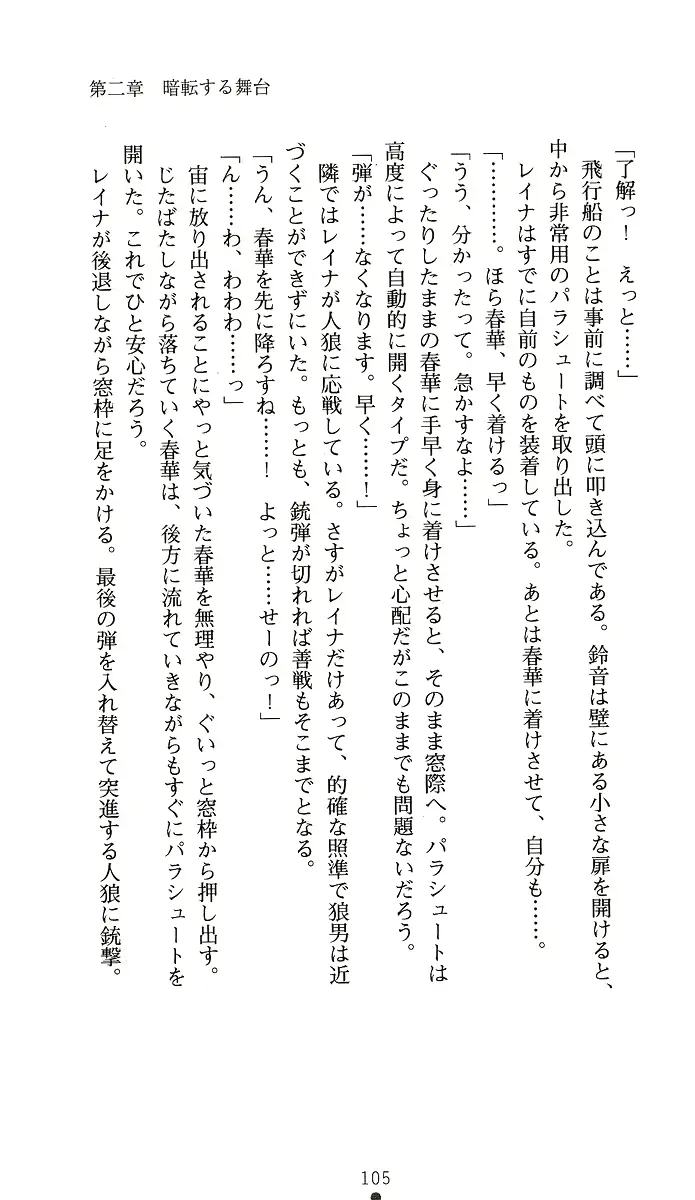 第二章　暗転する舞台
「了解っ！　えっと……」
　飛行船のことは事前に調べて頭に叩き込んである。鈴音は壁にある小さな扉を開けると、
中から非常用のパラシュートを取り出した。
　レイナはすでに自前のものを装着している。あとは春華に着けさせて、自分も……。
「…………。ほら春華、早く着けるっ」
「うう、分かったって。急かすなよ……」
　ぐったりしたままの春華に手早く身に着けさせると、そのまま窓際へ。パラシュートは
高度によって自動的に開くタイプだ。ちょっと心配だがこのままでも問題ないだろう。
「弾が……なくなります。早く……！」
　隣ではレイナが人狼に応戦している。さすがレイナだけあって、的確な照準で狼男は近
づくことができずにいた。もっとも、銃弾が切れれば善戦もそこまでとなる。
「うん、春華を先に降ろすね……！　よっと……せーのっ！」
「ん……わ、わわわ……っ」
　宙に放り出されることにやっと気づいた春華を無理やり、ぐいっと窓枠から押し出す。
　じたばたしながら落ちていく春華は、後方に流れていきながらもすぐにパラシュートを
開いた。これでひと安心だろう。
　レイナが後退しながら窓枠に足をかける。最後の弾を入れ替えて突進する人狼に銃撃。
105